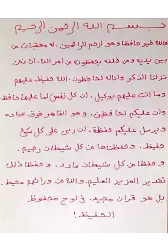 بسم الله الرحمن الرحيم
فالله خير حافظا وهو أرحم الراحمين، له معقبات من
بين يديه ومن خلفه يحفظونه من أمر الله، إنا نحن
نزلنا الذكر وإنا له لحافظون، الله حفيظ عليهم
وما أنت عليهم بوكيل، إن كل نفس لما عليها حافظ
وإن عليكم لحافظين، وهو القاهر فوق عباده
ويرسل عليكم حفظة، إن ربي على كل شيء
حفيظ، وحفظناها من كل شيطان رجيم
وحفظا من كل شيطان مارد، وحفظا ذلك
تقدير العزيز العليم والله من ورائهم محيط
بل هو قرآن مجيد في لوح محفوظ
الحفيظ